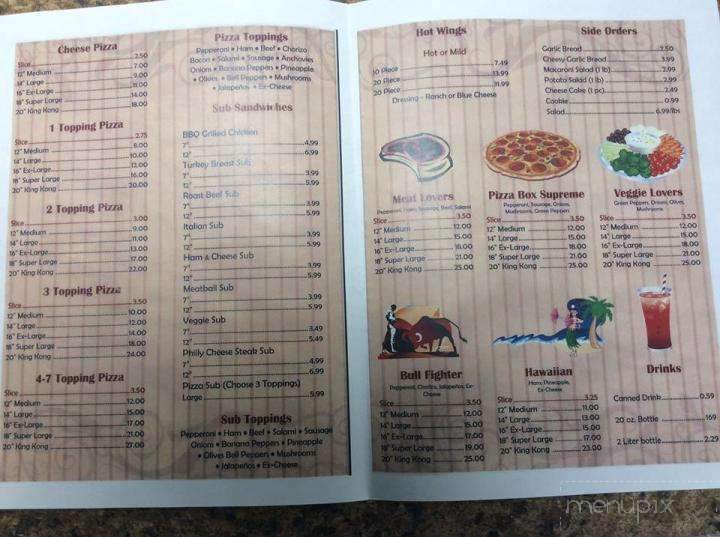 Cheese Pizza
Slice 2.50
12" Medium 7.00
14" Large 9.00
16" Ex-Large 11.00
18" Super Large 14.00
20" King Kong 18.00
1 Topping Pizza
Slice 2.75
12" Medium 8.00
14" Large 10.00
16" Ex-Large 12.00
18" Super Large 16.00
20" King Kong 20.00
2 Topping Pizza
Slice 3.00
12" Medium 9.00
14" Large 11.00
16" Ex-Large 13.00
18" Super Large 17.00
20" King Kong 22.00
3 Topping Pizza
Slice 3.50
12" Medium 10.00
14" Large 12.00
16" Ex-Large 14.00
18" Super Large 18.00
20" King Kong 24.00
4-7 Topping Pizza
Slice 3.50
12" Medium 12.00
14" Large 15.00
16" Ex-Large 17.00
18" Super Large 21.00
20" King Kong 27.00
Pizza Toppings
Pepperoni • Ham • Beef • Chorizo
Bacon • Salami • Sausage • Anchovies
Onions • Banana Peppers • Pineapple
• Olives • Bell Peppers • Mushrooms
• Jalapeños • Ex-Cheese
Sub Sandwiches
BBQ Grilled Chicken
7" 4.99
12" 6.99
Turkey Breast Sub
7" 3.99
12" 5.99
Roast Beef Sub
7" 3.99
12" 5.99
Italian Sub
7" 3.99
12" 5.99
Ham & Cheese Sub
7" 3.99
12" 5.99
Meatball Sub
7" 3.99
12" 5.99
Veggie Sub
7" 3.49
12" 5.49
Philly Cheese Steak Sub
7" 4.99
12" 6.99
Pizza Sub (Choose 3 Toppings)
Large 5.99
Sub Toppings
Pepperoni • Ham • Beef • Salami • Sausage
Onions • Banana Peppers • Pineapple
• Olives Bell Peppers • Mushrooms
• Jalapeños • Ex-Cheese
Hot Wings
Hot or Mild
10 Piece 7.49
20 Piece 13.99
20 Piece 11.99
Dressing - Ranch or Blue Cheese
Side Orders
Garlic Bread 2.50
Cheesy Garlic Bread 3.99
Macaroni Salad (1 lb) 2.99
Potato Salad (1 lb) 2.99
Cheese Cake (1 pc) 2.49
Cookie 0.99
Salad 6.99/lbs
Meat Lovers
Pepperoni, Ham, Sausage, Beef, Salami
Slice 3.50
12" Medium 12.00
14" Large 15.00
16" Ex-Large 18.00
18" Super Large 21.00
20" King Kong 25.00
Pizza Box Supreme
Pepperoni, Sausage, Onions,
Mushrooms, Green Peppers
Slice 3.50
12" Medium 12.00
14" Large 15.00
16" Ex-Large 18.00
18" Super Large 21.00
20" King Kong 25.00
Veggie Lovers
Green Peppers, Onions, Olives,
Mushrooms
Slice 3.50
12" Medium 12.00
14" Large 15.00
16" Ex-Large 18.00
18" Super Large 21.00
20" King Kong 25.00
Bull Fighter
Pepperoni, Chorizo, Jalapeños, Ex-
Cheese
Slice 3.50
12" Medium 12.00
14" Large 15.00
16" Ex-Large 17.00
18" Super Large 19.00
20" King Kong 25.00
Hawaiian
Ham, Pineapple,
Ex-Cheese
Slice 3.25
12" Medium 11.00
14" Large 13.00
16" Ex-Large 15.00
18" Super Large 17.00
20" King Kong 23.00
Drinks
Canned Drink 0.59
20 oz. Bottle 169
2 Liter bottle 2.29
menupix